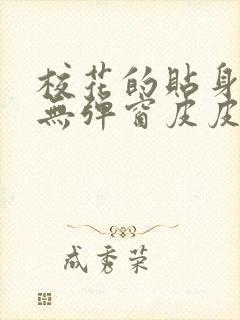 校花的貼身
無彈窗皮皮
成秀荣